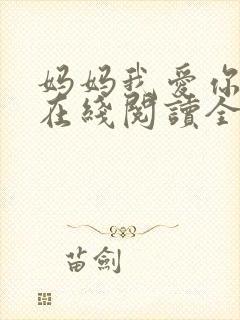 妈妈我爱你
在綫閱讀全
苗劍